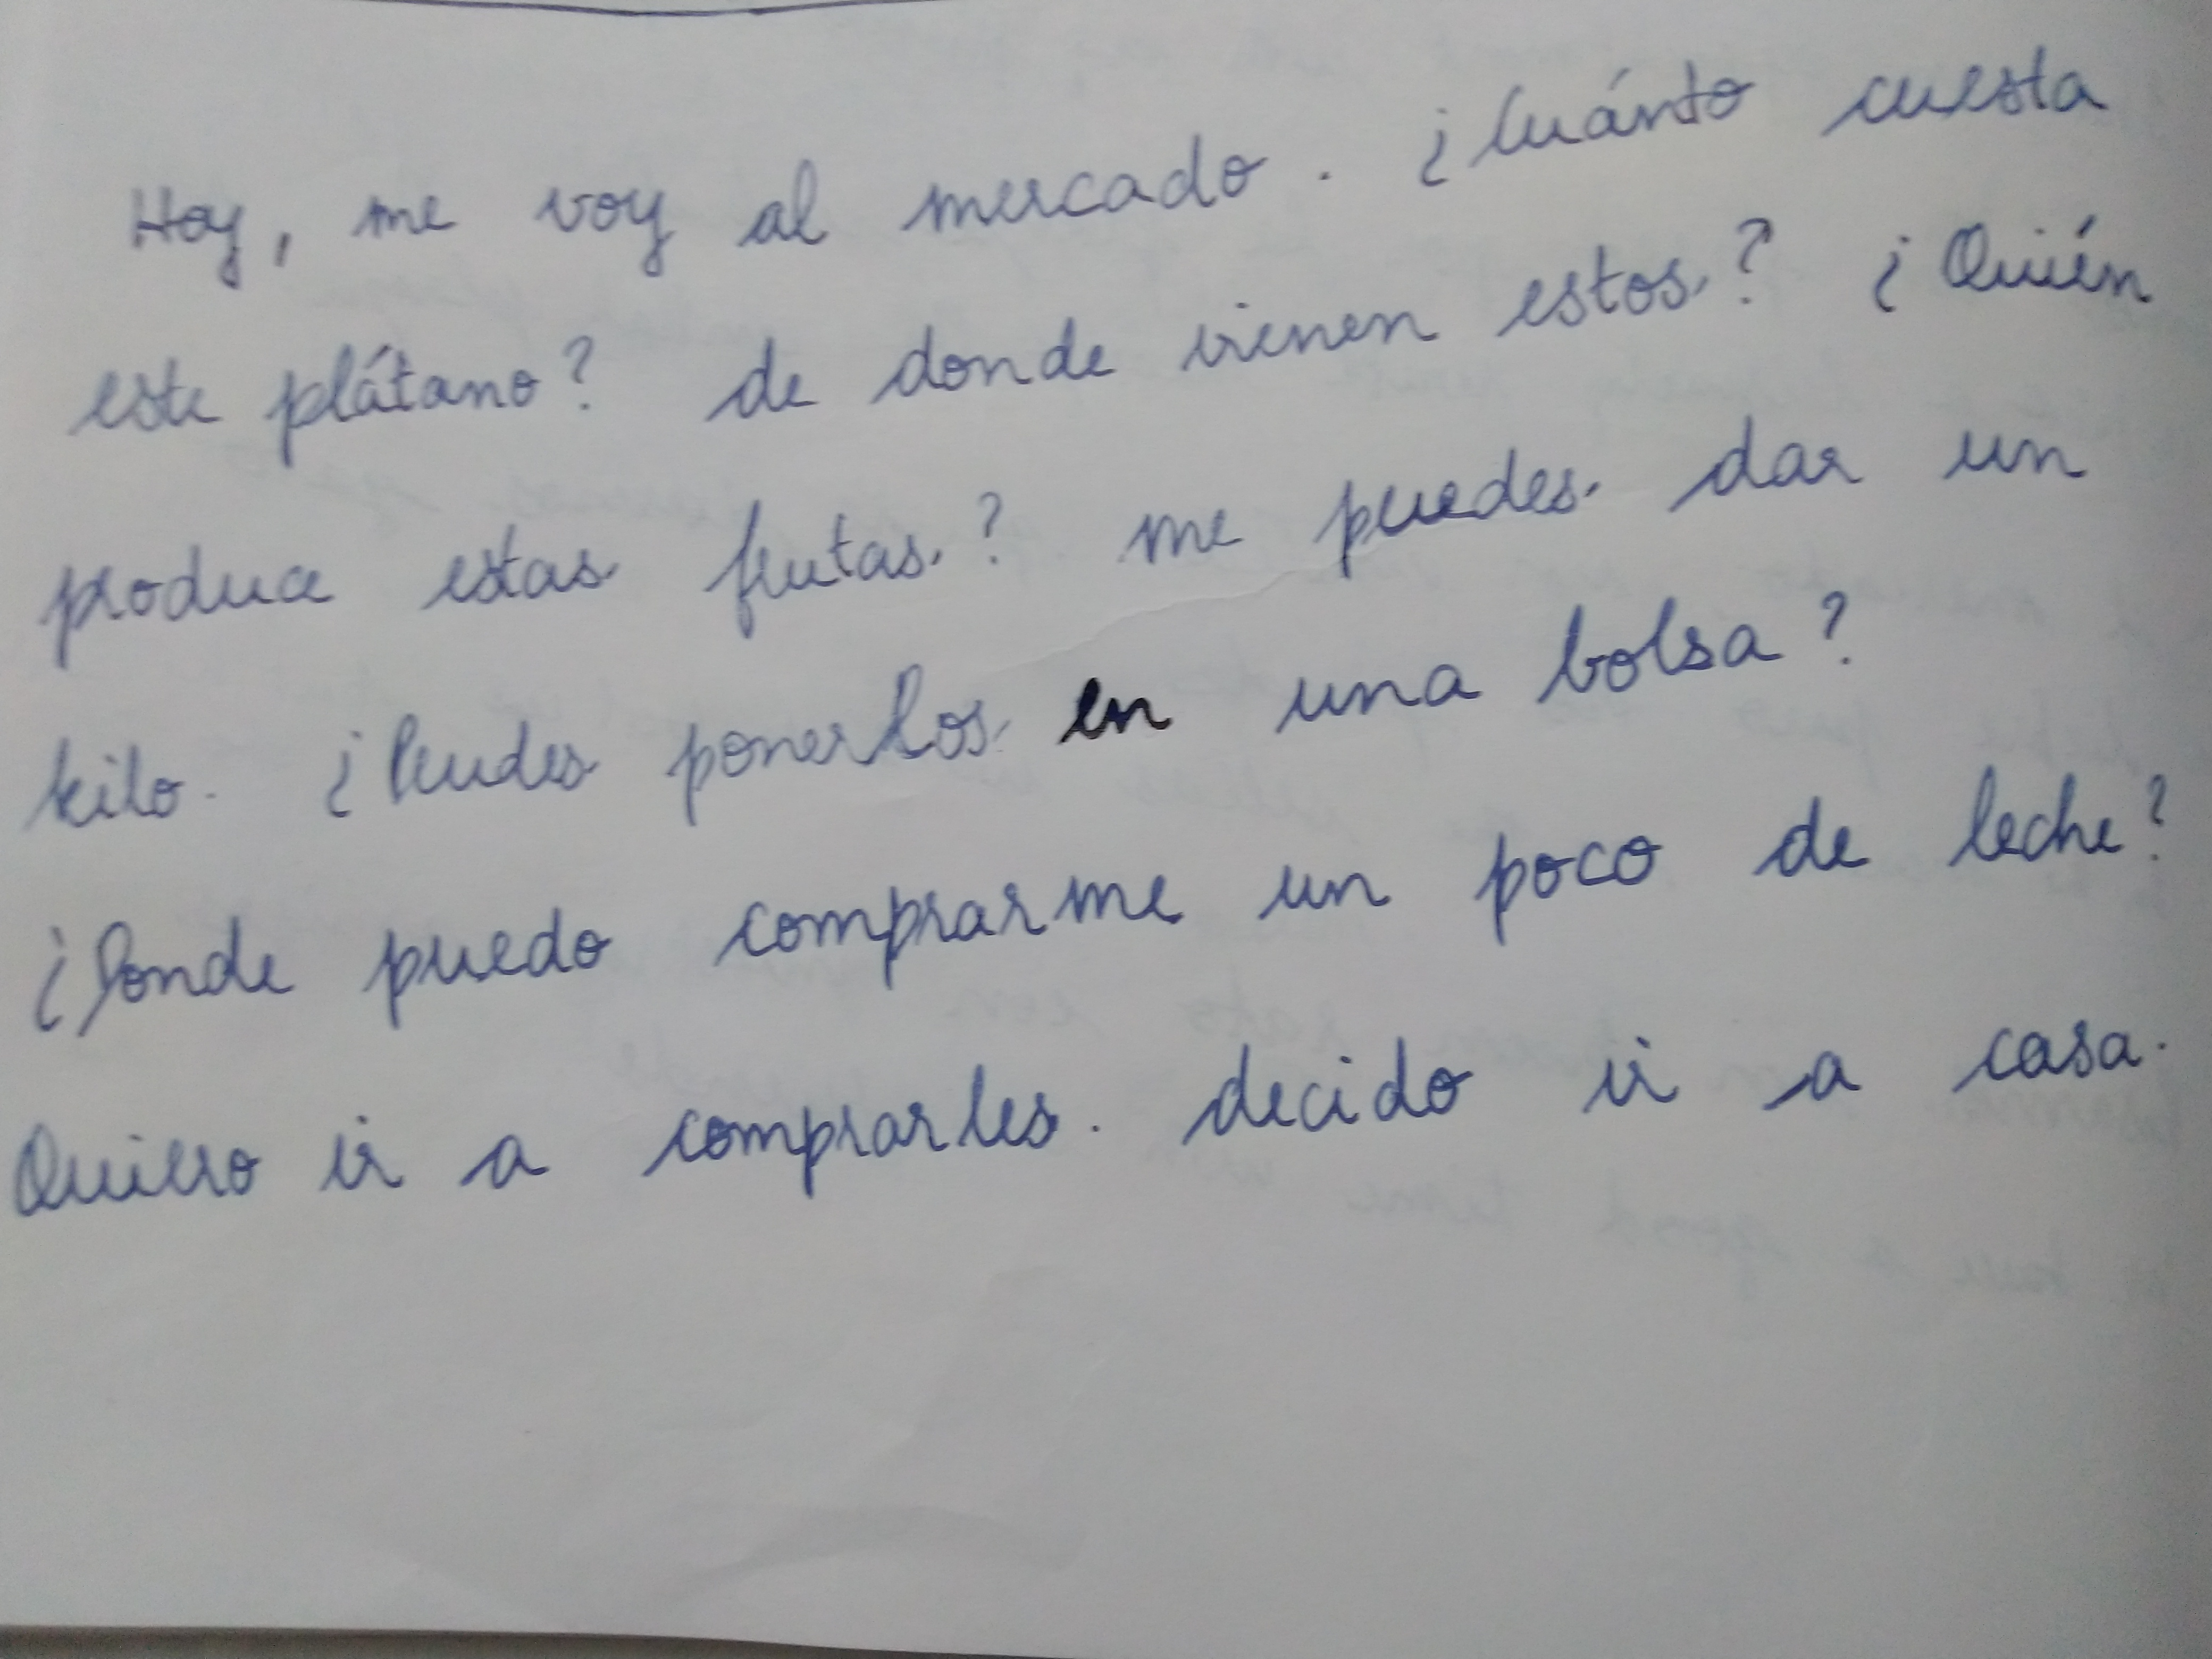 Hoy, me voy al mercado. ¿Cuánto cuesta
este plátano? de donde vienen estos? ¿Quién
produce estas frutas? me puedes dar un
kilo. ¿Puedes ponerlos en una bolsa?
¿Donde puedo comprarme un poco de leche?
Quiero ir a comprarles. decido ir a casa.